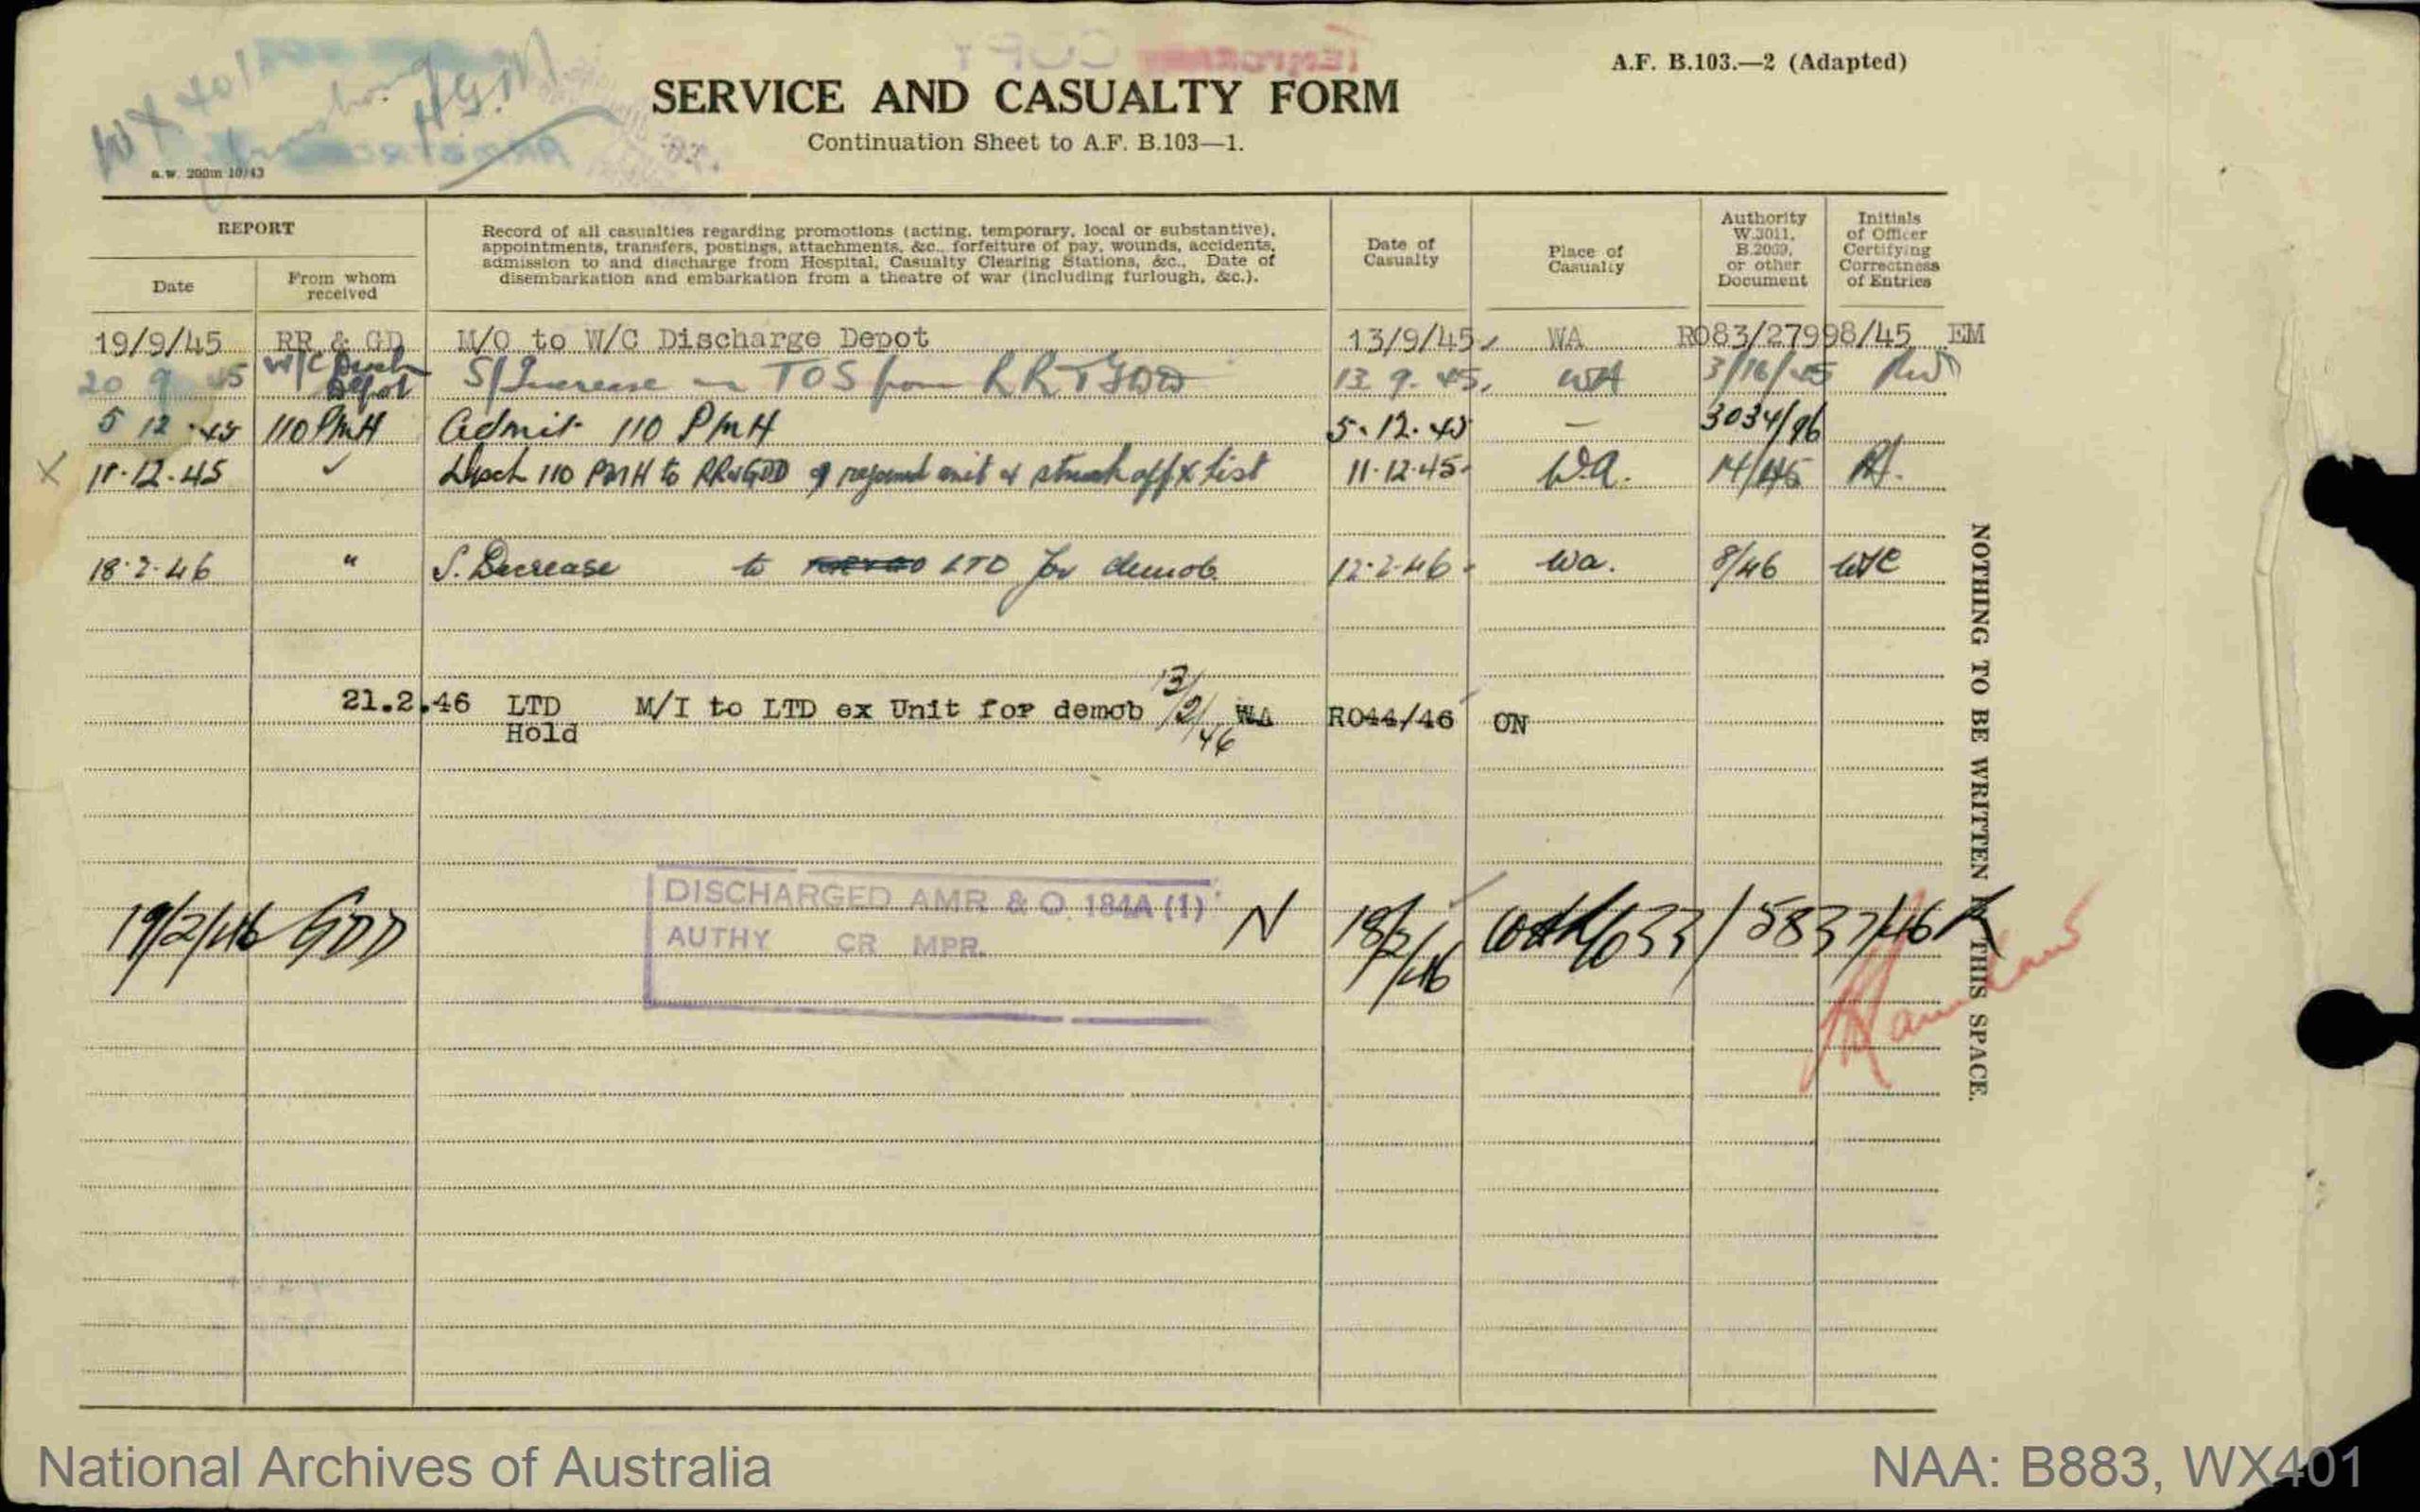 A.F. B.103.—2 (Adapted)
SERVICE AND CASUALTY FORM
Continuation Sheet to A.F. B.103—1.
a.w. 200m 10/43
REPORT
Date
From whom
received
Record of all casualties regarding promotions (acting, temporary, local or substantive),
appointments, transfers, postings, attachments, &c., forfeiture of pay, wounds, accidents,
admission to and discharge from Hospital, Casualty Clearing Stations, &c., Date of
disembarkation and embarkation from a theatre of war (including furlough, &c.).
Date of
Casualty
Place of
Casualty
Authority
W.3011,
B.2069,
or other
Document
Initials
of Officer
Certifying
Correctness
of Entries
19/9/45 RR & GD M/O to W/C Discharge Depot 13/9/45 WA RO83/27998/45 EM
20 9 45 W/C Disch Depot S/Increase TOS from 13 9. 45. WA 3/16/45
5 12 45 110 PMH Admit 110 PMH 5.12.45 — 3034/96
X 11.12.45 Disch 110 PMH to RR&GDD rejoined unit & struck off X list 11.12.45 W.A.
18.2.46 " S. Decrease to LTD for demob. 12.2.46 Wa. 8/46
21.2.46 LTD Hold M/I to LTD ex Unit for demob 13/2/46 WA RO44/46 ON
19/2/46 GDD
DISCHARGED AMR & O. 184A (1)
AUTHY CR MPR.
N
/5837/46
NOTHING TO BE WRITTEN IN THIS SPACE.
National Archives of Australia
NAA: B883, WX401